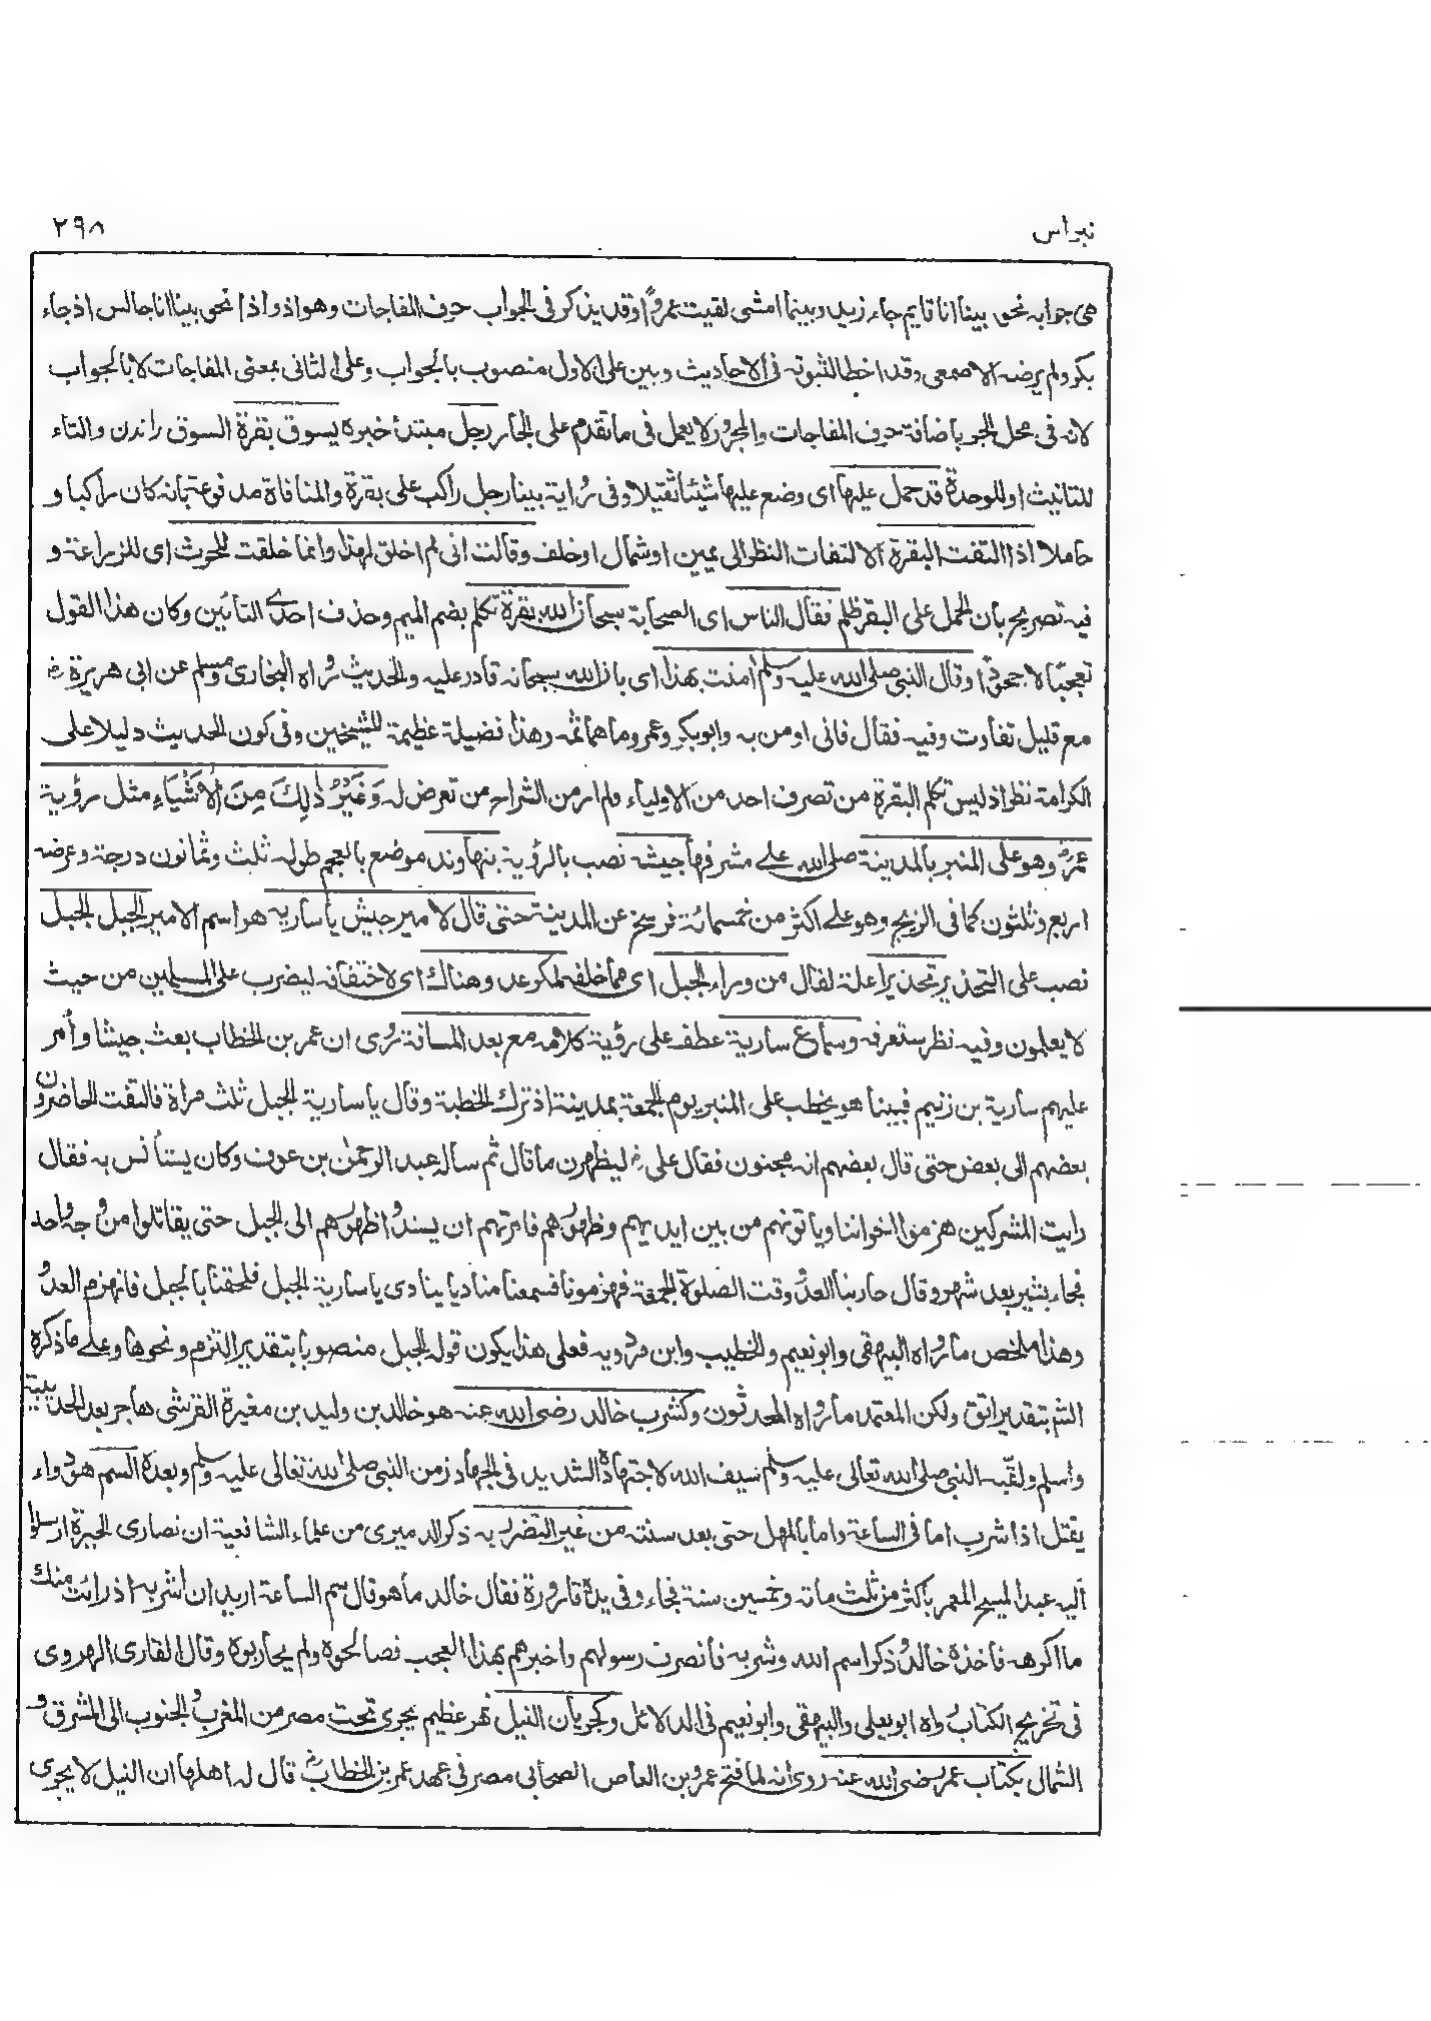 نبراس ٢٩٨
هى جوابه نحو بينا انا قايم جاء زيد وبينما امشى لقيت عمرًوا وقد يذكر فى الجواب حرف المفاجات وهو اذ واذا نحو بينا انا جالس اذ جاء
بكر ولم يرضه الاصمعى وقد اخطا لثبوته فى الاحاديث وبين على الاول منصوب بالجواب وعلى الثانى بمعنى المفاجات لا بالجواب
لانه فى محل الجر باضافة حرف المفاجات والمجرور لا يعمل فى ما تقدم على الجار رجل مبتدأ خبره يسوق بقرة السوق راندن والتاء
للتانيث او للوحدة قد حمل عليها اى وضع عليها شيئا ثقيلا وفى رُاية بينا رجل راكب على بقرة والمنافاة مدفوعة بانه كان راكبا و
حاملا اذا التفت البقرة الالتفات النظر الى يمين او شمال او خلف وقالت انى لم اخلق لهذا وانما خلقت للحرث اى للزراعة و
فيه تصريح بان الحمل على البقر ظلم فقال الناس اى الصحابة سبحان الله بقرة تكلم بضم الميم وحذف احدى التائين وكان هذا القول
تعجبًا لا جحودًا وقال النبى صلى الله عليه وسلم امنت بهذا اى بان الله سبحانه قادر عليه والحديث رُاه البخارى ومسلم عن ابى هريرة رض
مع قليل تفاوت وفيه فقال فانى اومن به وابو بكر وعمر وما هما ثمه وهذا فضيلة عظيمة للشيخين وفى كون الحديث دليلا على
الكرامة نظر اذ ليس تكلم البقرة من تصرف احد من الاولياء ولم ار من الشراح من تعرض له وَغَيْرُ ذٰلِكَ مِنَ الْأَشْيَاءِ مثل رؤية
عمرؓ وهو على المنبر بالمدينة صلى الله على مشرفها جيشه نصب بالرؤية بنهاوند موضع بالعجم طوله ثلث وثمانون درجة وعرضه
اربع وثلثون كما فى الزيج وهو على اكثر من خمسمائة فرسخ عن المدينة حتى قال لامير جيش يا سارية هو اسم الامير الجبل الجبل
نصب على التحذير تحذيرا علة لقال من وراء الجبل اى مما خلفه لمكر عد وهناك اى لاختفافه ليضرب على المسلمين من حيث
لا يعلمون وفيه نظر ستعرفه وسماع سارية عطف على رؤية كلامه مع بعد المسافة رُى ان عمر بن الخطاب بعث جيشا وأمر
عليهم سارية بن زنيم فبينا هو يخطب على المنبر يوم الجمعة بمدينة اذ ترك الخطبة وقال يا سارية الجبل ثلث مراة فالتفت الحاضرون
بعضهم الى بعض حتى قال بعضهم انه مجنون فقال على رض ليظهرن ما قال ثم ساله عبد الرحمٰن بن عوف وكان يستأنس به فقال
رايت المشركين هزموا اخواننا وياتونهم من بين ايديهم وظهورهم فامرتهم ان يسندُا ظهورُهم الى الجبل حتى يقاتلوا من وجه واحد
فجاء بشير بعد شهر وقال حاربنا العدوُّ وقت الصلوة الجمعة فهزمونا فسمعنا مناديا ينادى يا سارية الجبل فلحقنا بالجبل فانهزم العدوُّ
وهذا ملخص ما رُاه البيهقى وابو نعيم والخطيب وابن مردويه فعلى هذا يكون قوله الجبل منصوبا بتقدير التزم ونحوها وعلى ما ذكره
الشم بتقدير اتق ولكن المعتمد ما رُاه المحدثون وكشرب خالد رضى الله عنه هو خالد بن وليد بن مغيرة القرشى هاجر بعد الحديبية
واسلم ولقّبه النبى صلى الله تعالى عليه وسلم سيف الله لاجتهادهٖ الشديد فى الجهاد زمن النبى صلى الله تعالى عليه وسلم وبعده السم هو دواء
يقتل اذا شرب اما فى الساعة واما بالمهل حتى بعد سنته من غير التضرر به ذكر الدميرى من علماء الشافعية ان نصارى الحيرة ارسلوا
اليه عبد المسيح المعمر باكثر من ثلث مائة وخمسين سنة فجاء وفى يده قارورة فقال خالد ما هو قال سم الساعة اريد ان اشربه اذ رائت منك
ما اكرهه فاخذه خالدُ ذكر اسم الله وشربه فانصرف رسولهم واخبرهم بهذا العجب فصالحوه ولم يحاربوه وقال القارى الهروى
فى تخريج الكتاب رُواه ابو يعلى والبيهقى وابو نعيم فى الدلائل وكجريان النيل نهر عظيم يجرى تحت مصر من المغرب والجنوب الى المشرق و
الشمال بكتاب عمر رضى الله عنه روى انه لما فتح عمرو بن العاص الصحابى مصر فى عهد عمر بن الخطابؓ قال له اهلها ان النيل لا يجرى